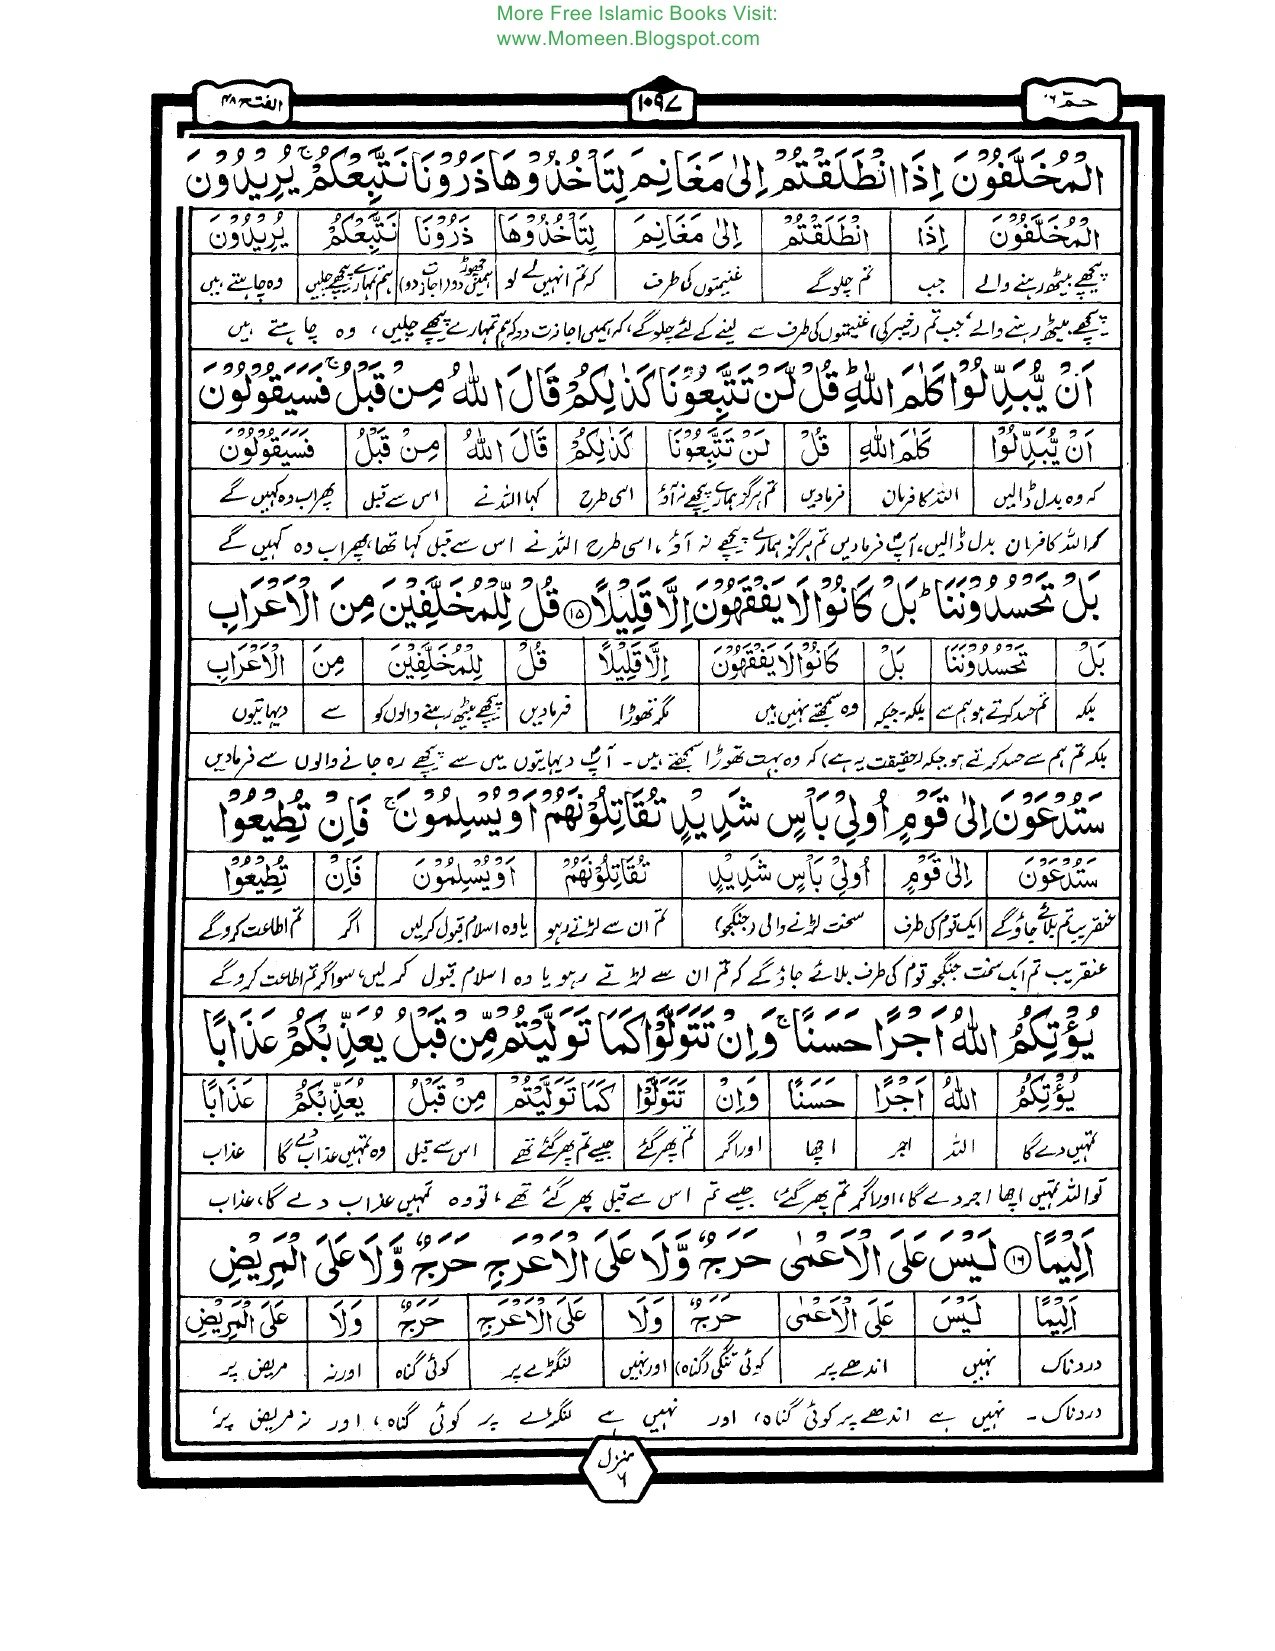 More Free Islamic Books Visit:
www.Momeen.Blogspot.com
حٰمٓ ۲۶ ۱۰۹۷ الفتح ۴۸
الْمُخَلَّفُوْنَ اِذَا انْطَلَقْتُمْ اِلٰى مَغَانِمَ لِتَاْخُذُوْهَا ذَرُوْنَا نَتَّبِعْكُمْ ۚ يُرِيْدُوْنَ
الْمُخَلَّفُوْنَ اِذَا انْطَلَقْتُمْ اِلٰى مَغَانِمَ لِتَاْخُذُوْهَا ذَرُوْنَا نَتَّبِعْكُمْ يُرِيْدُوْنَ
پیچھے بیٹھ رہنے والے جب تم چلوگے غنیمتوں کی طرف کہ تم انہیں لے لو ہمیں چھوڑ دو (اجازت دو) ہم تمہارے پیچھے چلیں وہ چاہتے ہیں
پیچھے بیٹھ رہنے والے، جب تم (خیبر کی) غنیمتوں کی طرف سے لینے کے لئے چلوگے، کہ ہمیں اجازت دو کہ ہم تمہارے پیچھے چلیں، وہ چاہتے ہیں
اَنْ يُّبَدِّلُوْا كَلٰمَ اللّٰهِ ؕ قُلْ لَّنْ تَتَّبِعُوْنَا كَذٰلِكُمْ قَالَ اللّٰهُ مِنْ قَبْلُ ۚ فَسَيَقُوْلُوْنَ
اَنْ يُّبَدِّلُوْا كَلٰمَ اللّٰهِ قُلْ لَنْ تَتَّبِعُوْنَا كَذٰلِكُمْ قَالَ اللّٰهُ مِنْ قَبْلُ فَسَيَقُوْلُوْنَ
کہ وہ بدل ڈالیں اللہ کا فرمان فرمادیں تم ہرگز ہمارے پیچھے نہ آؤ اسی طرح کہا اللہ نے اس سے قبل پھر اب وہ کہیں گے
کہ اللہ کا فرمان بدل ڈالیں، آپؐ فرمادیں تم ہرگز ہمارے پیچھے نہ آؤ، اسی طرح اللہ نے اس سے قبل کہا تھا، پھر اب وہ کہیں گے
بَلْ تَحْسُدُوْنَنَا ؕ بَلْ كَانُوْا لَا يَفْقَهُوْنَ اِلَّا قَلِيْلًا ۝۱۵ قُلْ لِّلْمُخَلَّفِيْنَ مِنَ الْاَعْرَابِ
بَلْ تَحْسُدُوْنَنَا بَلْ كَانُوْا لَا يَفْقَهُوْنَ اِلَّا قَلِيْلًا قُلْ لِلْمُخَلَّفِيْنَ مِنَ الْاَعْرَابِ
بلکہ تم حسد کرتے ہو ہم سے بلکہ۔جبکہ وہ سمجھتے نہیں ہیں مگر تھوڑا فرمادیں پیچھے بیٹھ رہنے والوں کو سے دیہاتیوں
بلکہ تم ہم سے حسد کرتے ہو جبکہ (حقیقت یہ ہے) کہ وہ بہت تھوڑا سمجھتے ہیں۔ آپؐ دیہاتیوں میں سے پیچھے رہ جانے والوں سے فرمادیں
سَتُدْعَوْنَ اِلٰى قَوْمٍ اُولِيْ بَاْسٍ شَدِيْدٍ تُقَاتِلُوْنَهُمْ اَوْ يُسْلِمُوْنَ ۚ فَاِنْ تُطِيْعُوْا
سَتُدْعَوْنَ اِلٰى قَوْمٍ اُولِيْ بَاْسٍ شَدِيْدٍ تُقَاتِلُوْنَهُمْ اَوْ يُسْلِمُوْنَ فَاِنْ تُطِيْعُوْا
عنقریب تم بلائے جاؤگے ایک قوم کی طرف سخت لڑنے والی (جنگجو) تم ان سے لڑتے رہو یا وہ اسلام قبول کرلیں اگر تم اطاعت کروگے
عنقریب تم ایک سخت جنگجو قوم کی طرف بلائے جاؤگے کہ تم ان سے لڑتے رہو یا وہ اسلام قبول کرلیں، سو اگر تم اطاعت کروگے
يُؤْتِكُمُ اللّٰهُ اَجْرًا حَسَنًا ۚ وَاِنْ تَتَوَلَّوْا كَمَا تَوَلَّيْتُمْ مِّنْ قَبْلُ يُعَذِّبْكُمْ عَذَابًا
يُؤْتِكُمُ اللّٰهُ اَجْرًا حَسَنًا وَاِنْ تَتَوَلَّوْا كَمَا تَوَلَّيْتُمْ مِنْ قَبْلُ يُعَذِّبْكُمْ عَذَابًا
تمہیں دے گا اللہ اجر اچھا اور اگر تم پھر گئے جیسے تم پھر گئے تھے اس سے قبل وہ تمہیں عذاب دے گا عذاب
تو اللہ تمہیں اچھا اجر دے گا، اور اگر تم پھر گئے، جیسے تم اس سے قبل پھر گئے تھے، تو وہ تمہیں عذاب دے گا، عذاب
اَلِيْمًا ۝۱۶ لَيْسَ عَلَى الْاَعْمٰى حَرَجٌ وَّلَا عَلَى الْاَعْرَجِ حَرَجٌ وَّلَا عَلَى الْمَرِيْضِ
اَلِيْمًا لَيْسَ عَلَى الْاَعْمٰى حَرَجٌ وَلَا عَلَى الْاَعْرَجِ حَرَجٌ وَلَا عَلَى الْمَرِيْضِ
دردناک نہیں اندھے پر کوئی تنگی (گناہ) اور نہیں لنگڑے پر کوئی گناہ اور نہ مریض پر
دردناک۔ نہیں ہے اندھے پر کوئی گناہ، اور نہیں ہے لنگڑے پر کوئی گناہ، اور نہ مریض پر،
منزل
۶